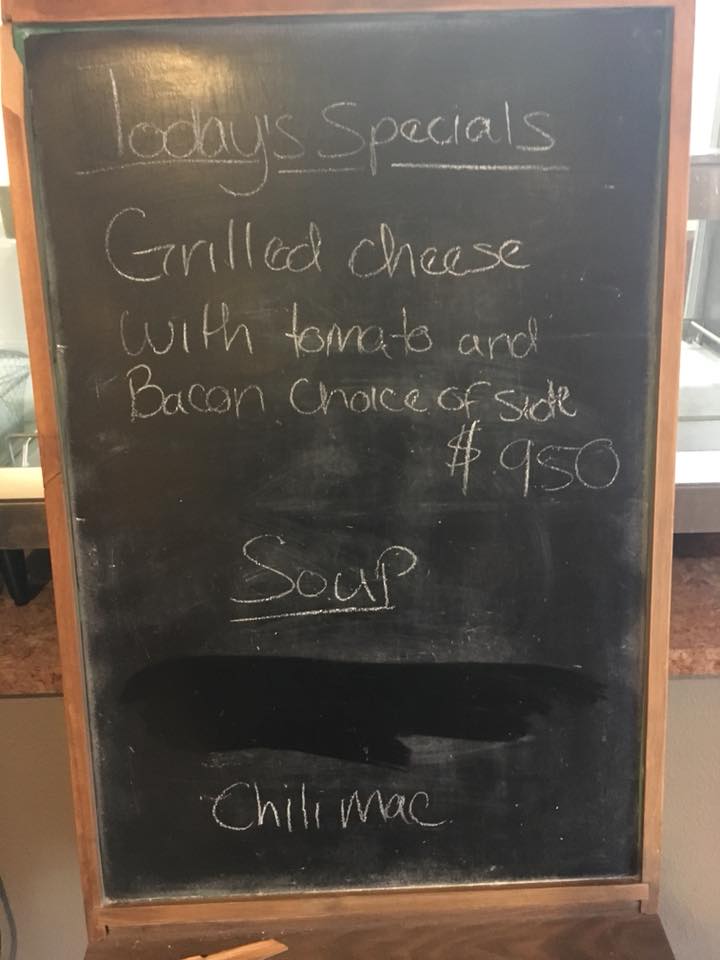 Today's Specials
Grilled cheese
with tomato and
Bacon Choice of side
$ 950
Soup
Chili Mac